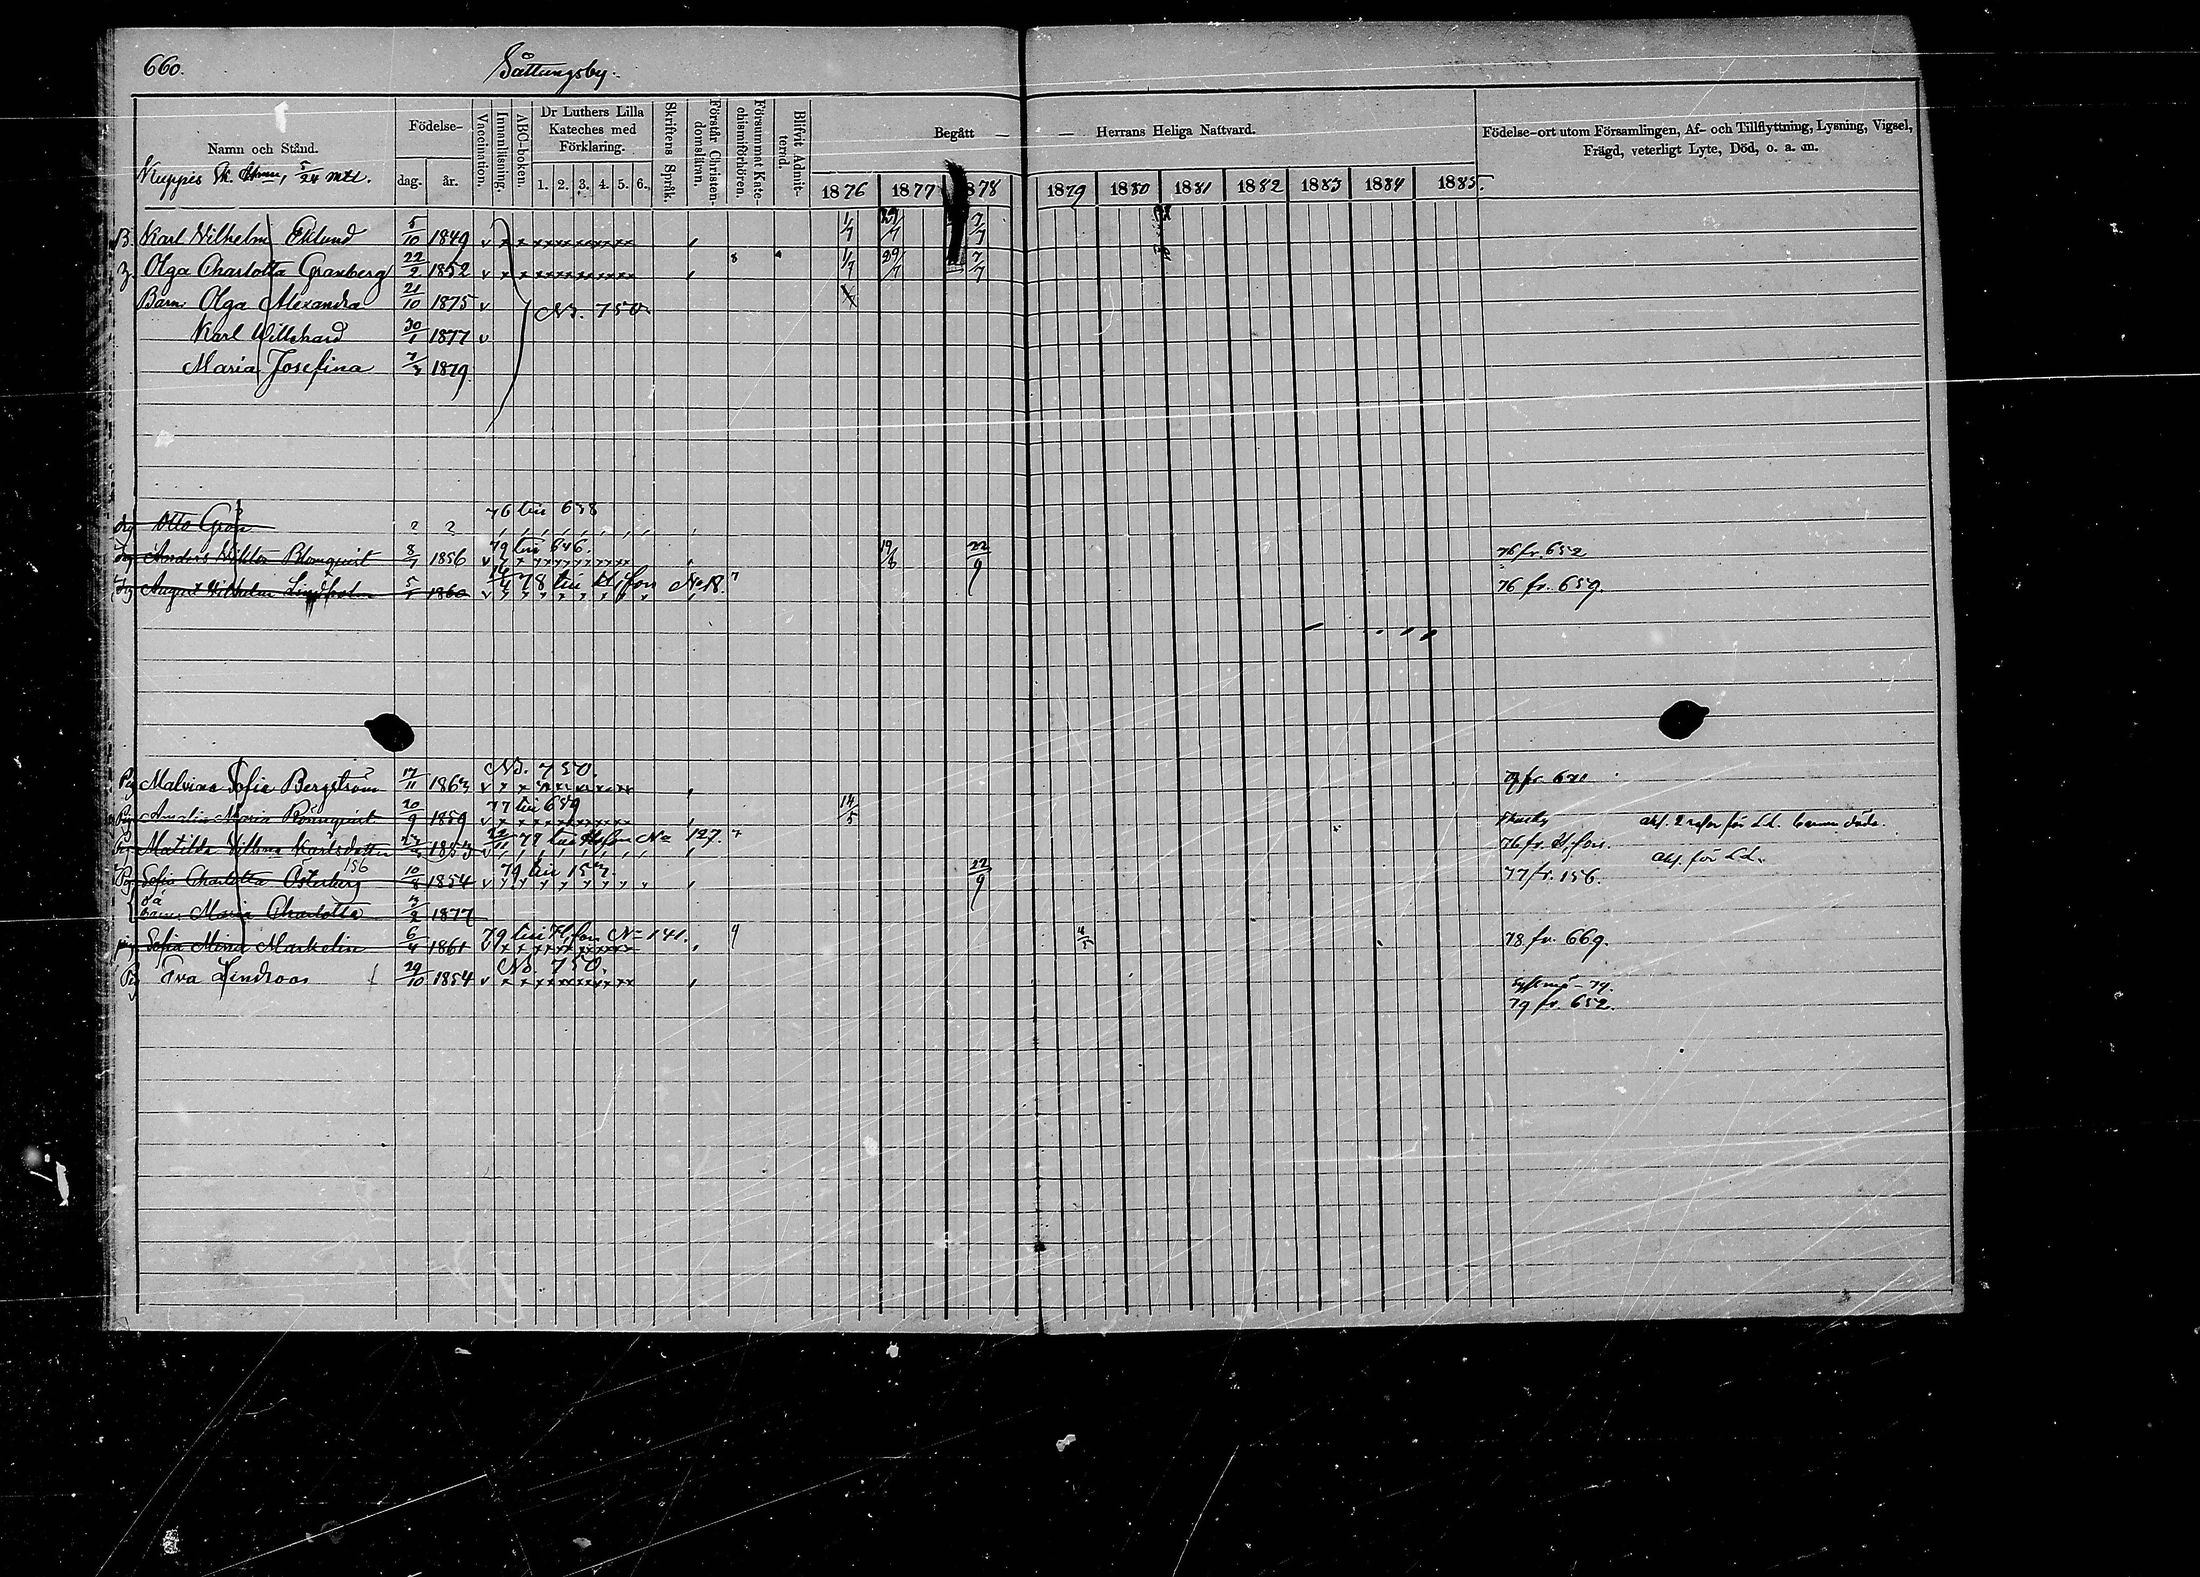 660.
Såttungsby.
Namn och Stånd.
Kuppis Sk. 5/24 mtl.
Födelse-
dag. år.
Vaccination.
Innanläsning.
ABC-boken.
Dr Luthers Lilla Kateches med Förklaring.
1. 2. 3. 4. 5. 6.
Skriftens Språk.
Förstår Christendomsläran.
Försummat Katechismiförhören.
Blifvit Admitterad.
Begått — — Herrans Heliga Nattvard.
1876 1877 1878 1879 1880 1881 1882 1883 1884 1885.
Födelse-ort utom Församlingen, Af- och Tillflyttning, Lysning, Vigsel,
Frägd, veterligt Lyte, Död, o. a. m.
B. Karl Vilhelm Eklund 5/10 1849 v 1/7 29/7 7/7
Olga Charlotta Granberg 22/2 1852 v 8 1/7 29/7 7/7
Barn: Olga Alexandra 21/10 1875 v N:o. 750
Karl Willehard 30/1 1877 v
Maria Josefina 7/3 1879
76 till 658
drg Otto Grön ? ?
79 till 646.
drg Anders Viktor Blomquist 8/7 1856 v 19/8 22/9 76 fr. 652
78 till H:fors No 18.
drg August Vilhelm Lindholm 1860 v 76 fr. 659.
N:o. 750.
Pig Malvina Sofia Bergström 17/11 1863 v
77 till 659
Pig Amalia Maria Rönnquist 20/9 1859 v 14/5
77 till H:fors No 127.
Pig Matilda Vilhna Karlsdotter 1853 v 76 fr. H:fors.
156
79 till 157.
Pig Sofia Charlotta Österberg 10/8 1854 v 22/9 77 fr. 156.
barn: Maria Charlotta 3/2 1877
79 till H:fors No 141.
pig Sofia Mina Markelin 6/4 1861 v 9 4/5 78 fr. 669.
N:o. 750.
Pig Eva Lindroos 29/10 1854 v
79 fr. 652.